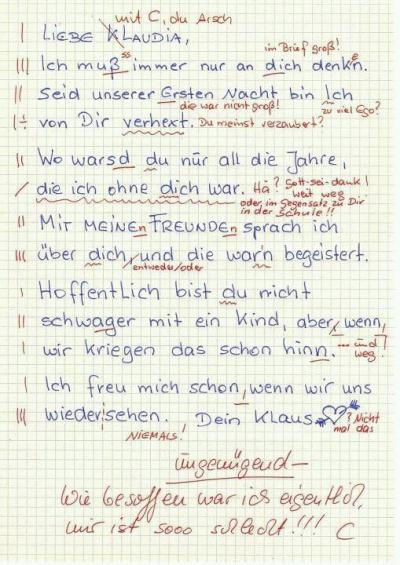 mit C, du Arsch
LIEBE KLAUDIA,
im Brief groß!
Ich muß ss immer nur an dich denk'n. e
Seid unserer Ersten Nacht bin Ich
die war nicht groß! zu viel Ego?
von Dir verhext. Du meinst verzaubert?
Wo warsd du nur all die Jahre,
die ich ohne dich war. Hä? Gott-sei-dank!
weit weg
oder, im Gegensatz zu Dir
in der Schule!!
MIT MEINEn FREUNDEn sprach ich
über dich, und die war'n begeistert.
entweder/oder
Hoffentlich bist du nicht
schwager mit ein Kind, aber, wenn,
wir kriegen das schon hinn. ... und weg!
Ich freu mich schon, wenn wir uns
wiedersehen. Dein Klaus ? Nicht
mal das
NIEMALS!
ungenügend –
Wie besoffen war ich eigentlich,
mir ist sooo schlecht!!! C